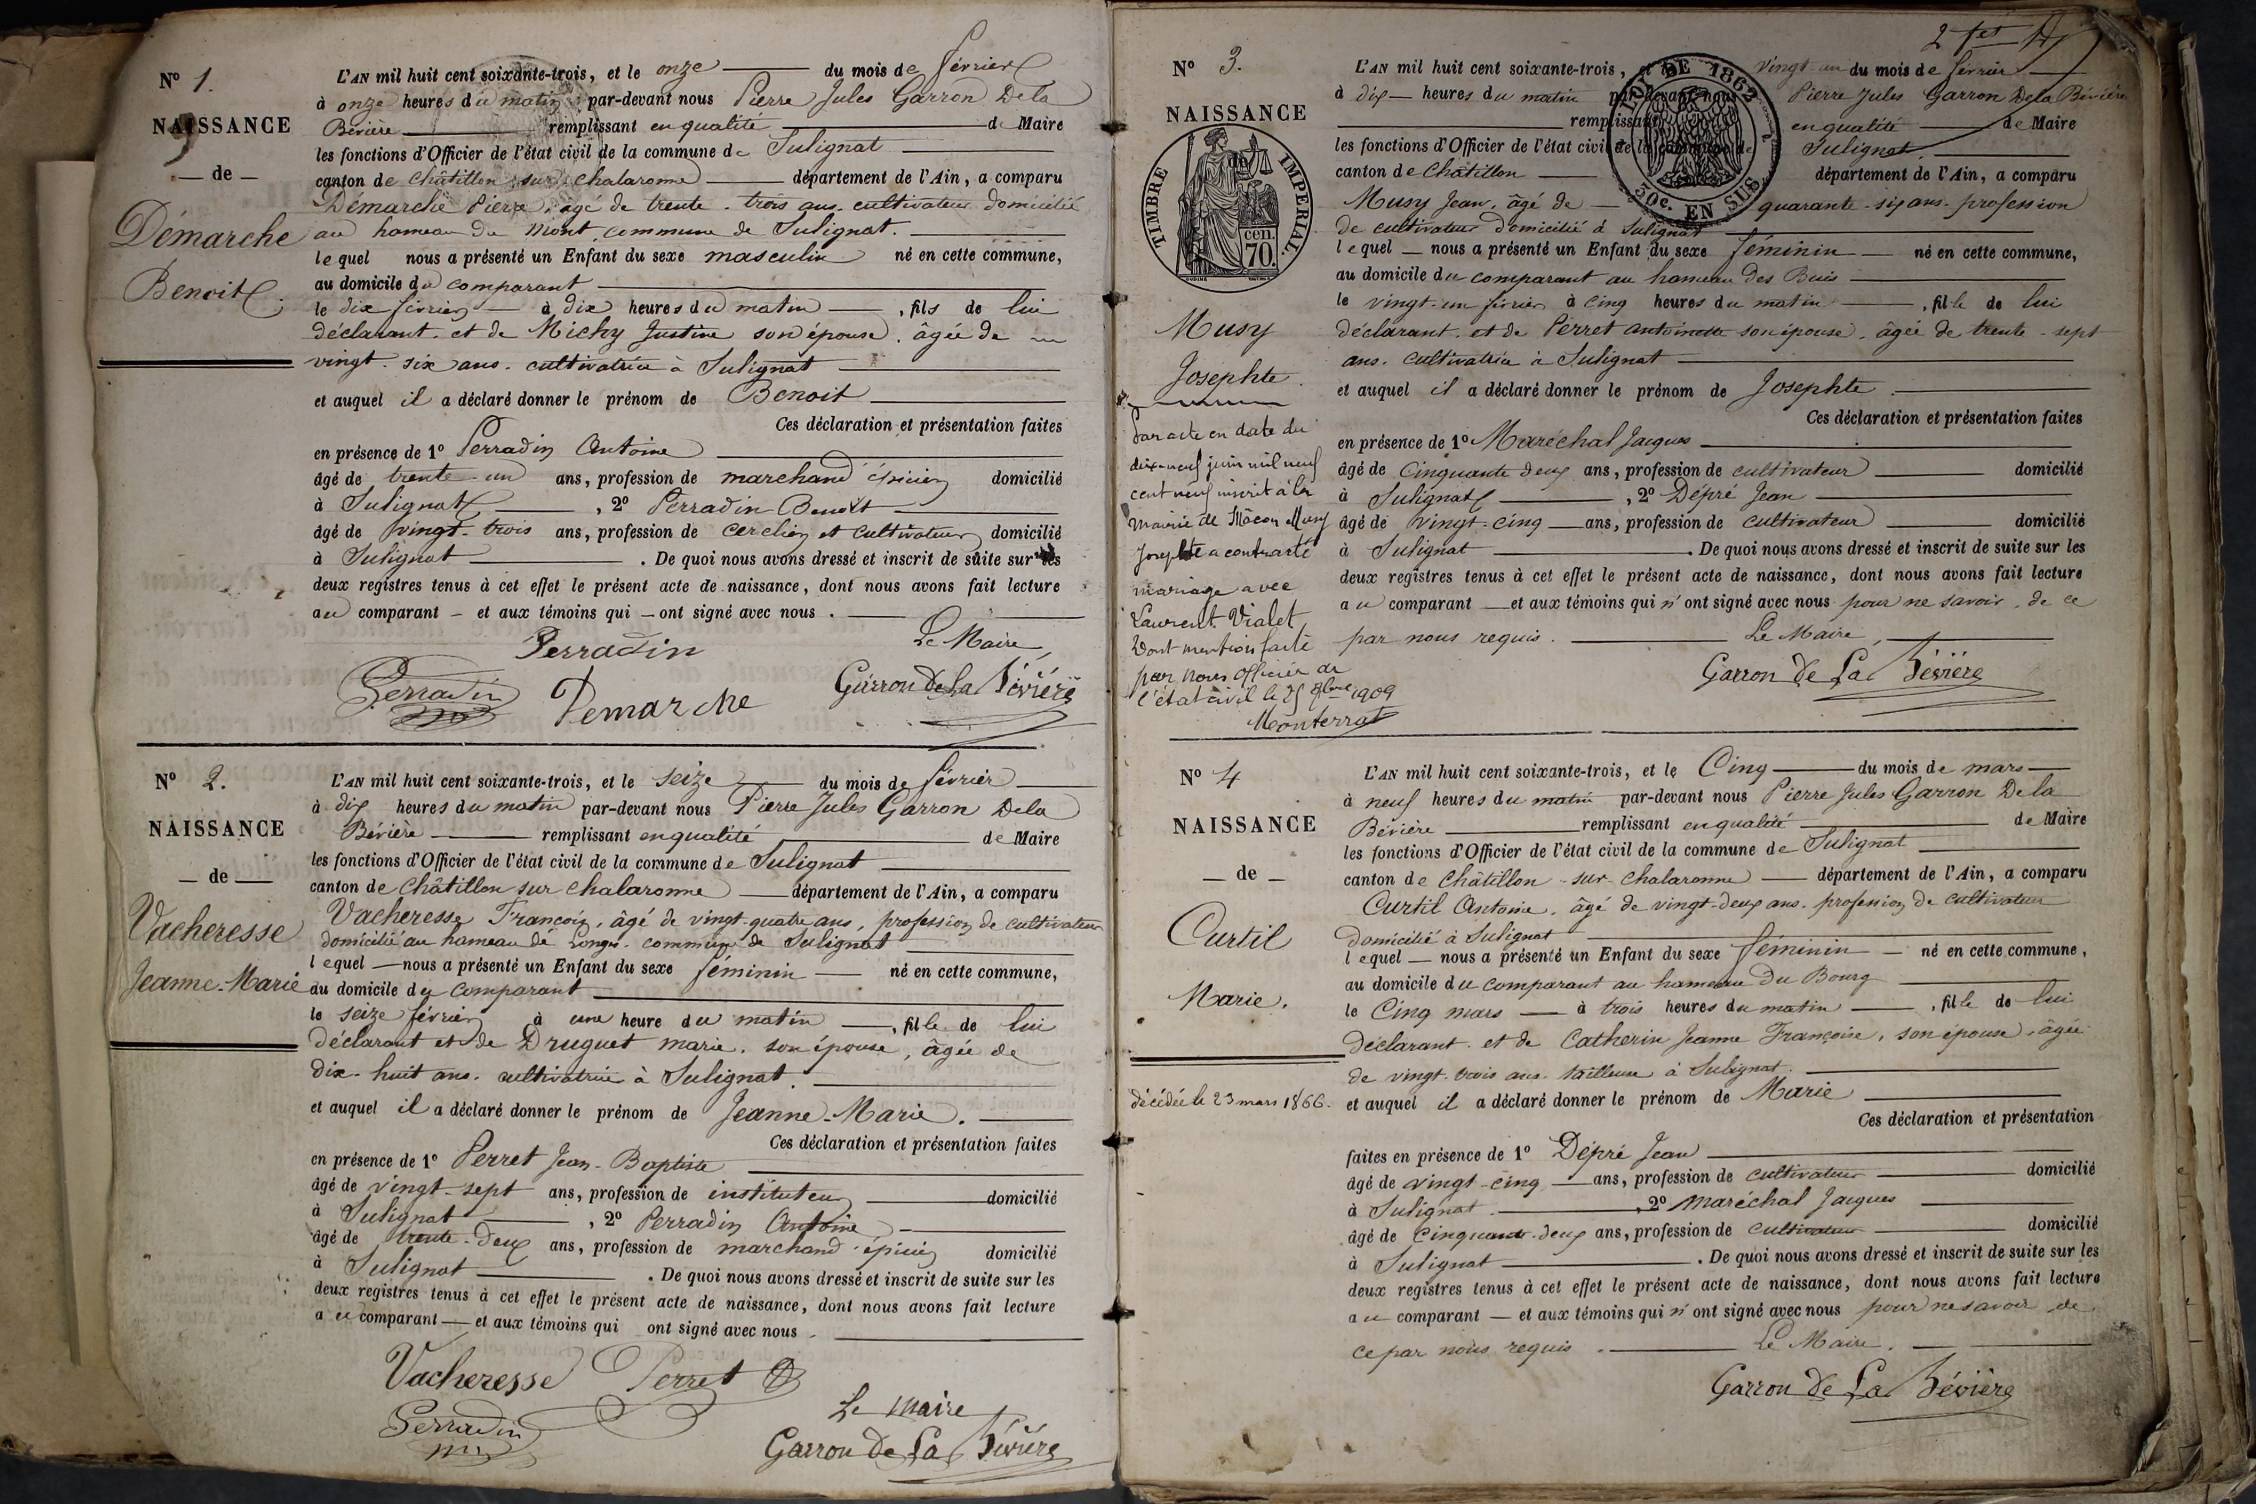 N° 1.
NAISSANCE
— de —
Démarche
Benoit
L'AN mil huit cent soixante-trois, et le onze du mois de février
à onze heures du matin par-devant nous Pierre Jules Garron De la
Bévière remplissant en qualité de Maire
les fonctions d'Officier de l'état civil de la commune de Sulignat
canton de Châtillon sur chalaronne département de l'Ain, a comparu
Démarche Pierre, âgé de trente-trois ans, cultivateur domicilié
au hameau du Mont, commune de Sulignat.
lequel nous a présenté un Enfant du sexe masculin né en cette commune,
au domicile du comparant
le dix février à dix heures du matin, fils de lui
déclarant et de Michy Justine son épouse, âgée de
vingt-six ans, cultivatrice à Sulignat
et auquel il a déclaré donner le prénom de Benoit
Ces déclaration et présentation faites
en présence de 1° Perradin Antoine
âgé de trente-un ans, profession de marchand épicier domicilié
à Sulignat, 2° Perradin Benoît
âgé de vingt-trois ans, profession de cerclier et cultivateur domicilié
à Sulignat. De quoi nous avons dressé et inscrit de suite sur les
deux registres tenus à cet effet le présent acte de naissance, dont nous avons fait lecture
au comparant — et aux témoins qui — ont signé avec nous.
Perradin Le Maire,
Perradin Demarche Garron de La Bévière
N° 2.
NAISSANCE
— de —
Vacheresse
Jeanne-Marie
L'AN mil huit cent soixante-trois, et le seize du mois de février
à dix heures du matin par-devant nous Pierre Jules Garron De la
Bévière remplissant en qualité de Maire
les fonctions d'Officier de l'état civil de la commune de Sulignat
canton de Châtillon sur chalaronne département de l'Ain, a comparu
Vacheresse François, âgé de vingt-quatre ans, profession de cultivateur
domicilié au hameau de Longe, commune de Sulignat
lequel — nous a présenté un Enfant du sexe féminin — né en cette commune,
au domicile du comparant
le seize février à une heure du matin, fille de lui
déclarant et de Druguet marie, son épouse, âgée de
dix-huit ans, cultivatrice à Sulignat.
et auquel il a déclaré donner le prénom de Jeanne-Marie.
Ces déclaration et présentation faites
en présence de 1° Perret Jean-Baptiste
âgé de vingt-sept ans, profession de instituteur domicilié
à Sulignat, 2° Perradin Antoine
âgé de trente-deux ans, profession de marchand épicier domicilié
à Sulignat. De quoi nous avons dressé et inscrit de suite sur les
deux registres tenus à cet effet le présent acte de naissance, dont nous avons fait lecture
au comparant — et aux témoins qui ont signé avec nous.
Vacheresse Perret
Perradin Le maire
Garron de La Bévière
N° 3.
NAISSANCE
TIMBRE IMPÉRIAL
70 cen.
Musy
Josephte
Par acte en date du
dix-neuf juin mil neuf
cent neuf inscrit à la
mairie de Mâcon Musy
Josephte a contracté
mariage avec
Laurent Vialet,
Dont mention faite
par nous officier de
l'état civil le 25 9bre 1909
Monterrat
2 fet
LOI DE 1862
50c. EN SUS
L'AN mil huit cent soixante-trois, et le vingt-un du mois de février
à dix — heures du matin par-devant nous Pierre Jules Garron De la Bévière
remplissant en qualité de Maire
les fonctions d'Officier de l'état civil de la commune de Sulignat
canton de Châtillon département de l'Ain, a comparu
Musy Jean, âgé de quarante-six ans, profession
de cultivateur domicilié à Sulignat
lequel — nous a présenté un Enfant du sexe féminin — né en cette commune,
au domicile du comparant au hameau des Buis
le vingt-un février à cinq heures du matin, fille de lui
déclarant et de Perret antoinette son épouse, âgée de trente-sept
ans, cultivatrice à Sulignat
et auquel il a déclaré donner le prénom de Josephte.
Ces déclaration et présentation faites
en présence de 1° Maréchal Jacques
âgé de cinquante deux ans, profession de cultivateur domicilié
à Sulignat, 2° Dépré Jean
âgé de vingt-cinq ans, profession de cultivateur domicilié
à Sulignat. De quoi nous avons dressé et inscrit de suite sur les
deux registres tenus à cet effet le présent acte de naissance, dont nous avons fait lecture
au comparant — et aux témoins qui n'ont signé avec nous pour ne savoir, de ce
par nous requis. Le Maire,
Garron de La Bévière
N° 4
NAISSANCE
— de —
Curtil
Marie.
décédée le 23 mars 1866.
L'AN mil huit cent soixante-trois, et le Cinq du mois de mars
à neuf heures du matin par-devant nous Pierre Jules Garron De la
Bévière remplissant en qualité de Maire
les fonctions d'Officier de l'état civil de la commune de Sulignat
canton de Châtillon-sur-chalaronne département de l'Ain, a comparu
Curtil Antoine, âgé de vingt-deux ans, profession de cultivateur
domicilié à Sulignat
lequel — nous a présenté un Enfant du sexe féminin — né en cette commune,
au domicile du comparant au hameau du Bourg
le Cinq mars — à trois heures du matin, fille de lui
déclarant et de Catherin Jeanne Françoise, son épouse, âgée
de vingt-trois ans tailleuse à Sulignat.
et auquel il a déclaré donner le prénom de Marie
Ces déclaration et présentation
faites en présence de 1° Dépré Jean
âgé de vingt-cinq ans, profession de cultivateur domicilié
à Sulignat, 2° Maréchal Jacques
âgé de cinquante-deux ans, profession de cultivateur domicilié
à Sulignat. De quoi nous avons dressé et inscrit de suite sur les
deux registres tenus à cet effet le présent acte de naissance, dont nous avons fait lecture
au comparant — et aux témoins qui n'ont signé avec nous pour ne savoir de
ce par nous requis. Le Maire.
Garron de La Bévière